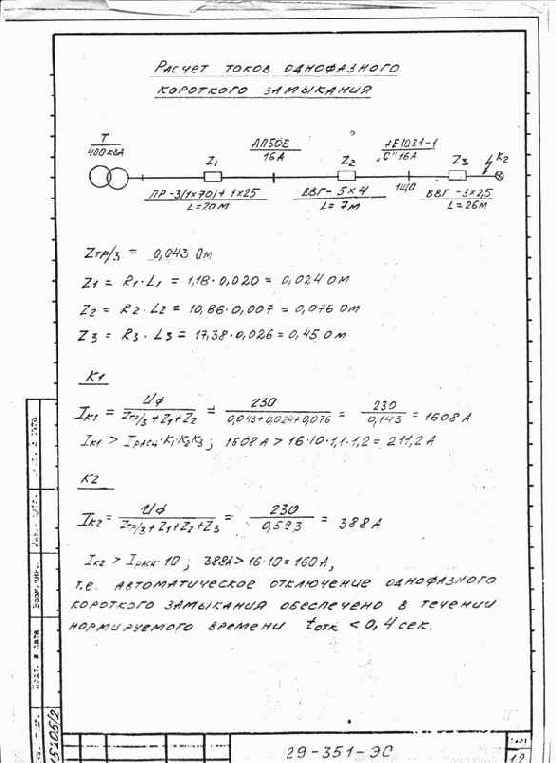 Расчет токов однофазного
короткого замыкания
Т
400 кВА
Z1
АП50Е
16А
Z2
„С" 16А
Z3
К2
ПР-3(1×70)+1×25
L=20м
ВВГ-5×4
L=7м
ЩО
ВВГ-3×2,5
L=26м
Zтр/3 = 0,043 Ом
Z1 = R1·L1 = 1,18·0,020 = 0,024 Ом
Z2 = R2·L2 = 10,86·0,007 = 0,076 Ом
Z3 = R3·L3 = 17,38·0,026 = 0,45 Ом
К1
Iк1 = Uф / Zтр/3 + Z1 + Z2 = 230 / 0,043+0,024+0,076 = 230 / 0,143 = 1608 А
Iк1 > Iрасч·К1·К2·К3; 1608А > 16·10·1,1·1,2 = 211,2 А
К2
Iк2 = Uф / Zтр/3 + Z1 + Z2 + Z3 = 230 / 0,593 = 388 А
Iк2 > Iрасч·10; 388А > 16·10 = 160 А,
т.е. автоматическое отключение однофазного
короткого замыкания обеспечено в течении
нормируемого времени tотк < 0,4 сек.
15205/2
29-351-ЭС
Лист